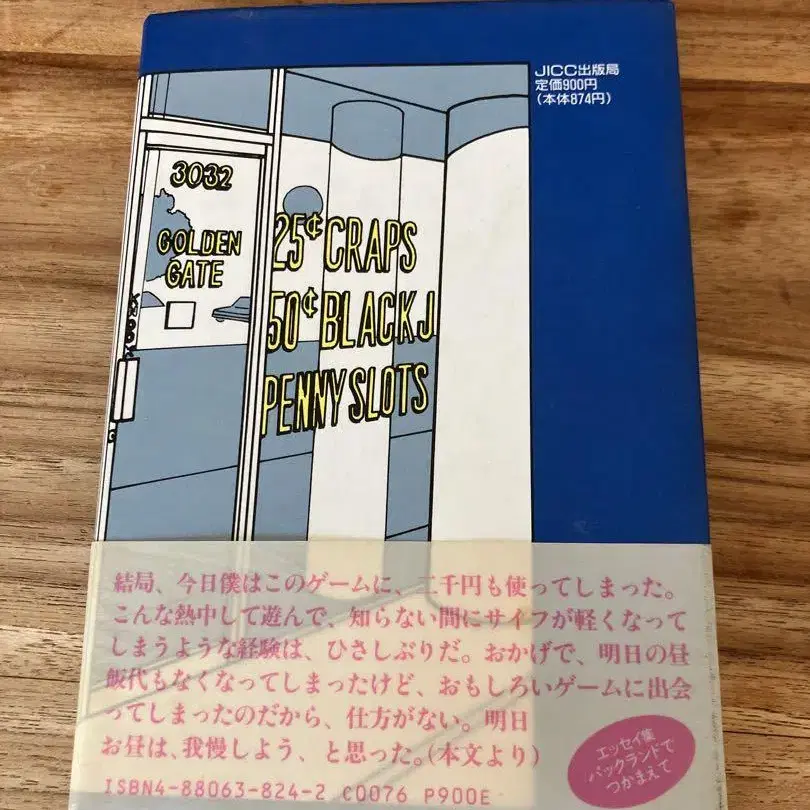 JICC出版局
定価900円
(本体874円)
3032
GOLDEN
GATE
25¢ CRAPS
50¢ BLACK J
PENNY SLOTS
結局、今日僕はこのゲームに、二千円も使ってしまった。
こんな熱中して遊んで、知らない間にサイフが軽くなって
しまうような経験は、ひさしぶりだ。おかげで、明日の昼
飯代もなくなってしまったけど、おもしろいゲームに出会
ってしまったのだから、仕方がない。明日
お昼は、我慢しよう、と思った。(本文より)
エッセイ集
パックランドで
つかまえて
ISBN4-88063-824-2 C0076 P900E